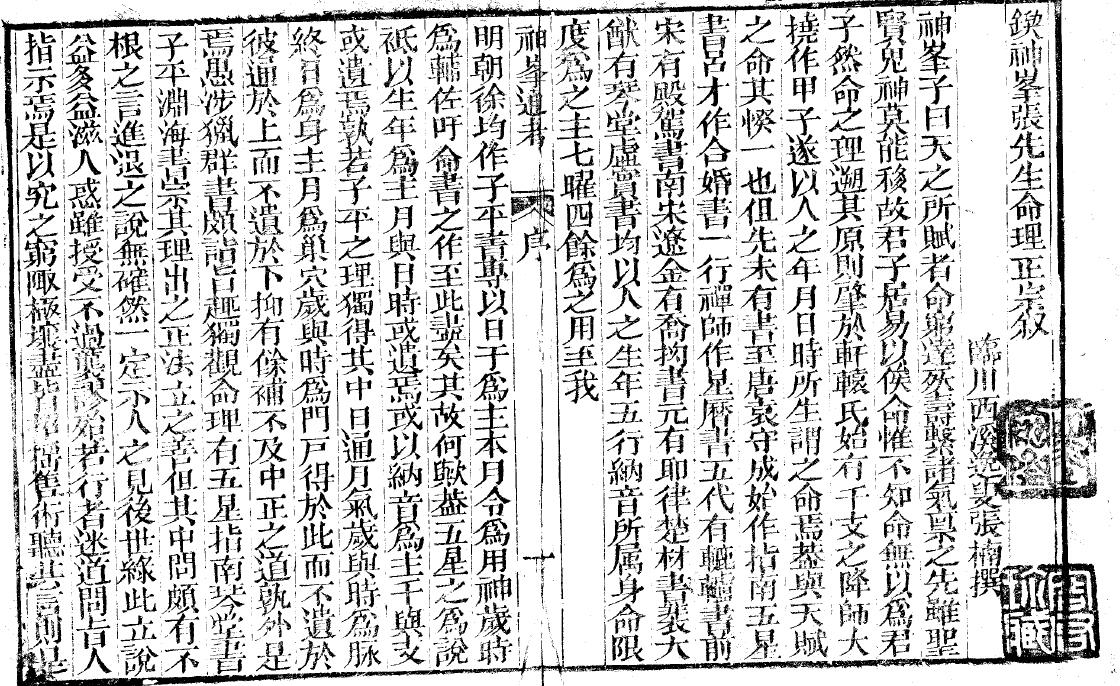 鐭神峯張先生命理正宗敘
臨川西溪逸叟張楠撰
神峯子曰天之所賦者命窮達殀壽繫諸氣禀之先雖聖
賢鬼神莫能移故君子居易以俟命惟不知命無以為君
子然命之理遡其原則肇於軒轅氏始有干支之降師大
撓作甲子遂以人之年月日時所生謂之命焉蓋與天賦
之命其揆一也但先未有書至唐袁守成始作指南五星
書呂才作合婚書一行禪師作星曆書五代有轆轤書前
宋有殿駕書南宋遼金有喬拘書元有耶律楚材書裴大
猷有琴堂虛實書均以人之生年五行納音所属身命限
度為之主七曜四餘為之用至我
神峯通考 序 一
明朝徐均作子平書專以日干為主本月令為用神歲時
為輔佐吁命書之作至此盡矣其故何歟蓋五星之為說
祇以生年為主月與日時或遺焉或以納音為主干與支
或遺焉孰若子平之理獨得其中日通月氣歲與時為脉
終日為身主月為巢穴歲與時為門戸得於此而不遺於
彼通於上而不遺於下抑有餘補不及中正之道孰外是
焉愚涉獵群書頗諳旨趣獨觀命理有五星指南琴堂書
子平淵海書宗其理出之正法立之善但其中間頗有不
根之言進退之說無確然一定示人之見後世緣此立說
益多益滋人惑雖授受不過藂說始若行者迷道問盲人
指示焉是以究之窮陬極壤盡皆 舊術聽其言則是